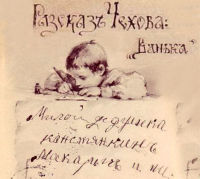 Разсказъ Чехова:
„Ванька"
Милой дедушка
канстянкинъ
макаричъ и пи